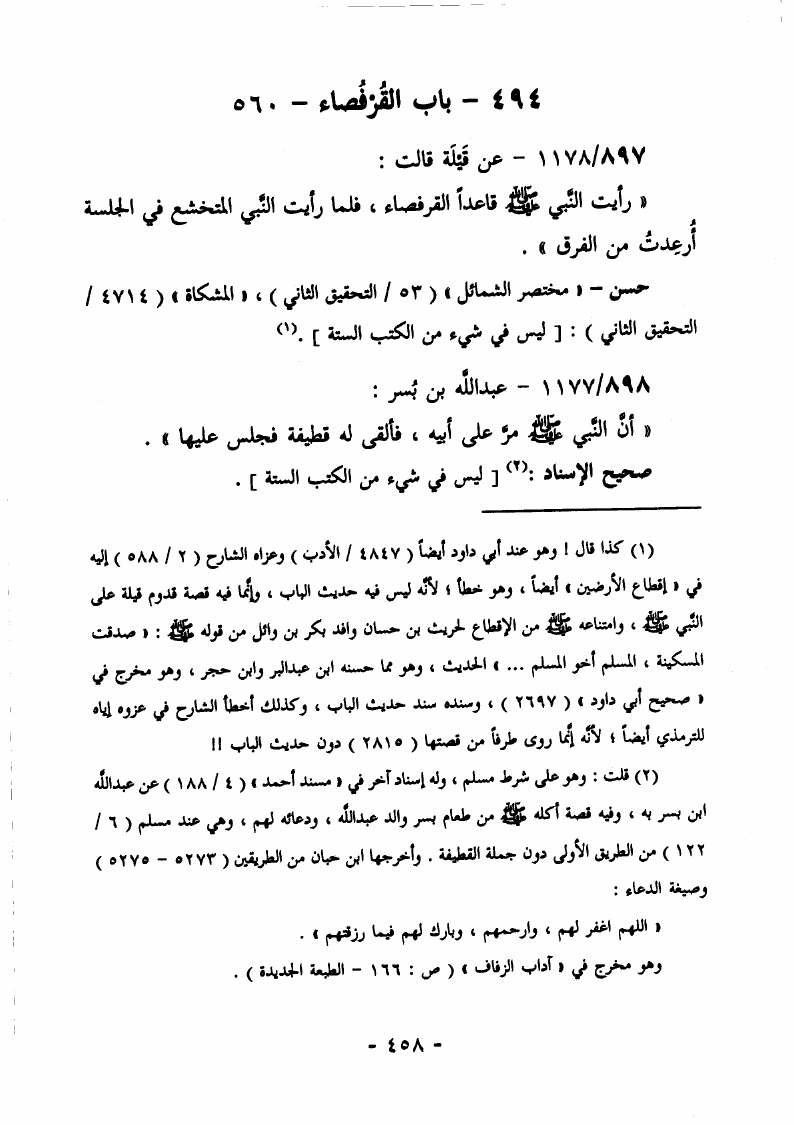 ٤٩٤ - باب القُرْفُصاء - ٥٦٠
١١٧٨/٨٩٧ - عن قَيْلَة قالت :
« رأيت النَّبي ﷺ قاعداً القرفصاء ، فلما رأيت النَّبي المتخشع في الجلسة
أُرعِدتُ من الفرق » .
حسن - « مختصر الشمائل » ( ٥٣ / التحقيق الثاني ) ، « المشكاة » ( ٤٧١٤ /
التحقيق الثاني ) : [ ليس في شيء من الكتب الستة ] .(١)
١١٧٧/٨٩٨ - عبداللَّه بن بُسر :
« أنَّ النَّبي ﷺ مرَّ على أبيه ، فألقى له قطيفة فجلس عليها » .
صحيح الإسناد :(٢) [ ليس في شيء من الكتب الستة ] .
(١) كذا قال ! وهو عند أبي داود أيضاً ( ٤٨٤٧ / الأدب ) وعزاه الشارح ( ٢ / ٥٨٨ ) إليه
في « إقطاع الأرضين » أيضاً ، وهو خطأ ؛ لأنَّه ليس فيه حديث الباب ، وإنَّما فيه قصة قدوم قيلة على
النَّبي ﷺ ، وامتناعه ﷺ من الإقطاع لحريث بن حسان وافد بكر بن وائل من قوله ﷺ : « صدقت
المسكينة ، المسلم أخو المسلم ... » الحديث ، وهو مما حسنه ابن عبدالبر وابن حجر ، وهو مخرج في
« صحيح أبي داود » ( ٢٦٩٧ ) ، وسنده سند حديث الباب ، وكذلك أخطأ الشارح في عزوه إياه
للترمذي أيضاً ؛ لأنَّه إنَّما روى طرفاً من قصتها ( ٢٨١٥ ) دون حديث الباب !!
(٢) قلت : وهو على شرط مسلم ، وله إسناد آخر في « مسند أحمد » ( ٤ / ١٨٨ ) عن عبداللَّه
ابن بسر به ، وفيه قصة أكله ﷺ من طعام بسر والد عبداللَّه ، ودعائه لهم ، وهي عند مسلم ( ٦ /
١٢٢ ) من الطريق الأولى دون جملة القطيفة . وأخرجها ابن حبان من الطريقين ( ٥٢٧٣ - ٥٢٧٥ )
وصيغة الدعاء :
« اللهم اغفر لهم ، وارحمهم ، وبارك لهم فيما رزقتهم » .
وهو مخرج في « آداب الزفاف » ( ص : ١٦٦ - الطبعة الجديدة ) .
- ٤٥٨ -